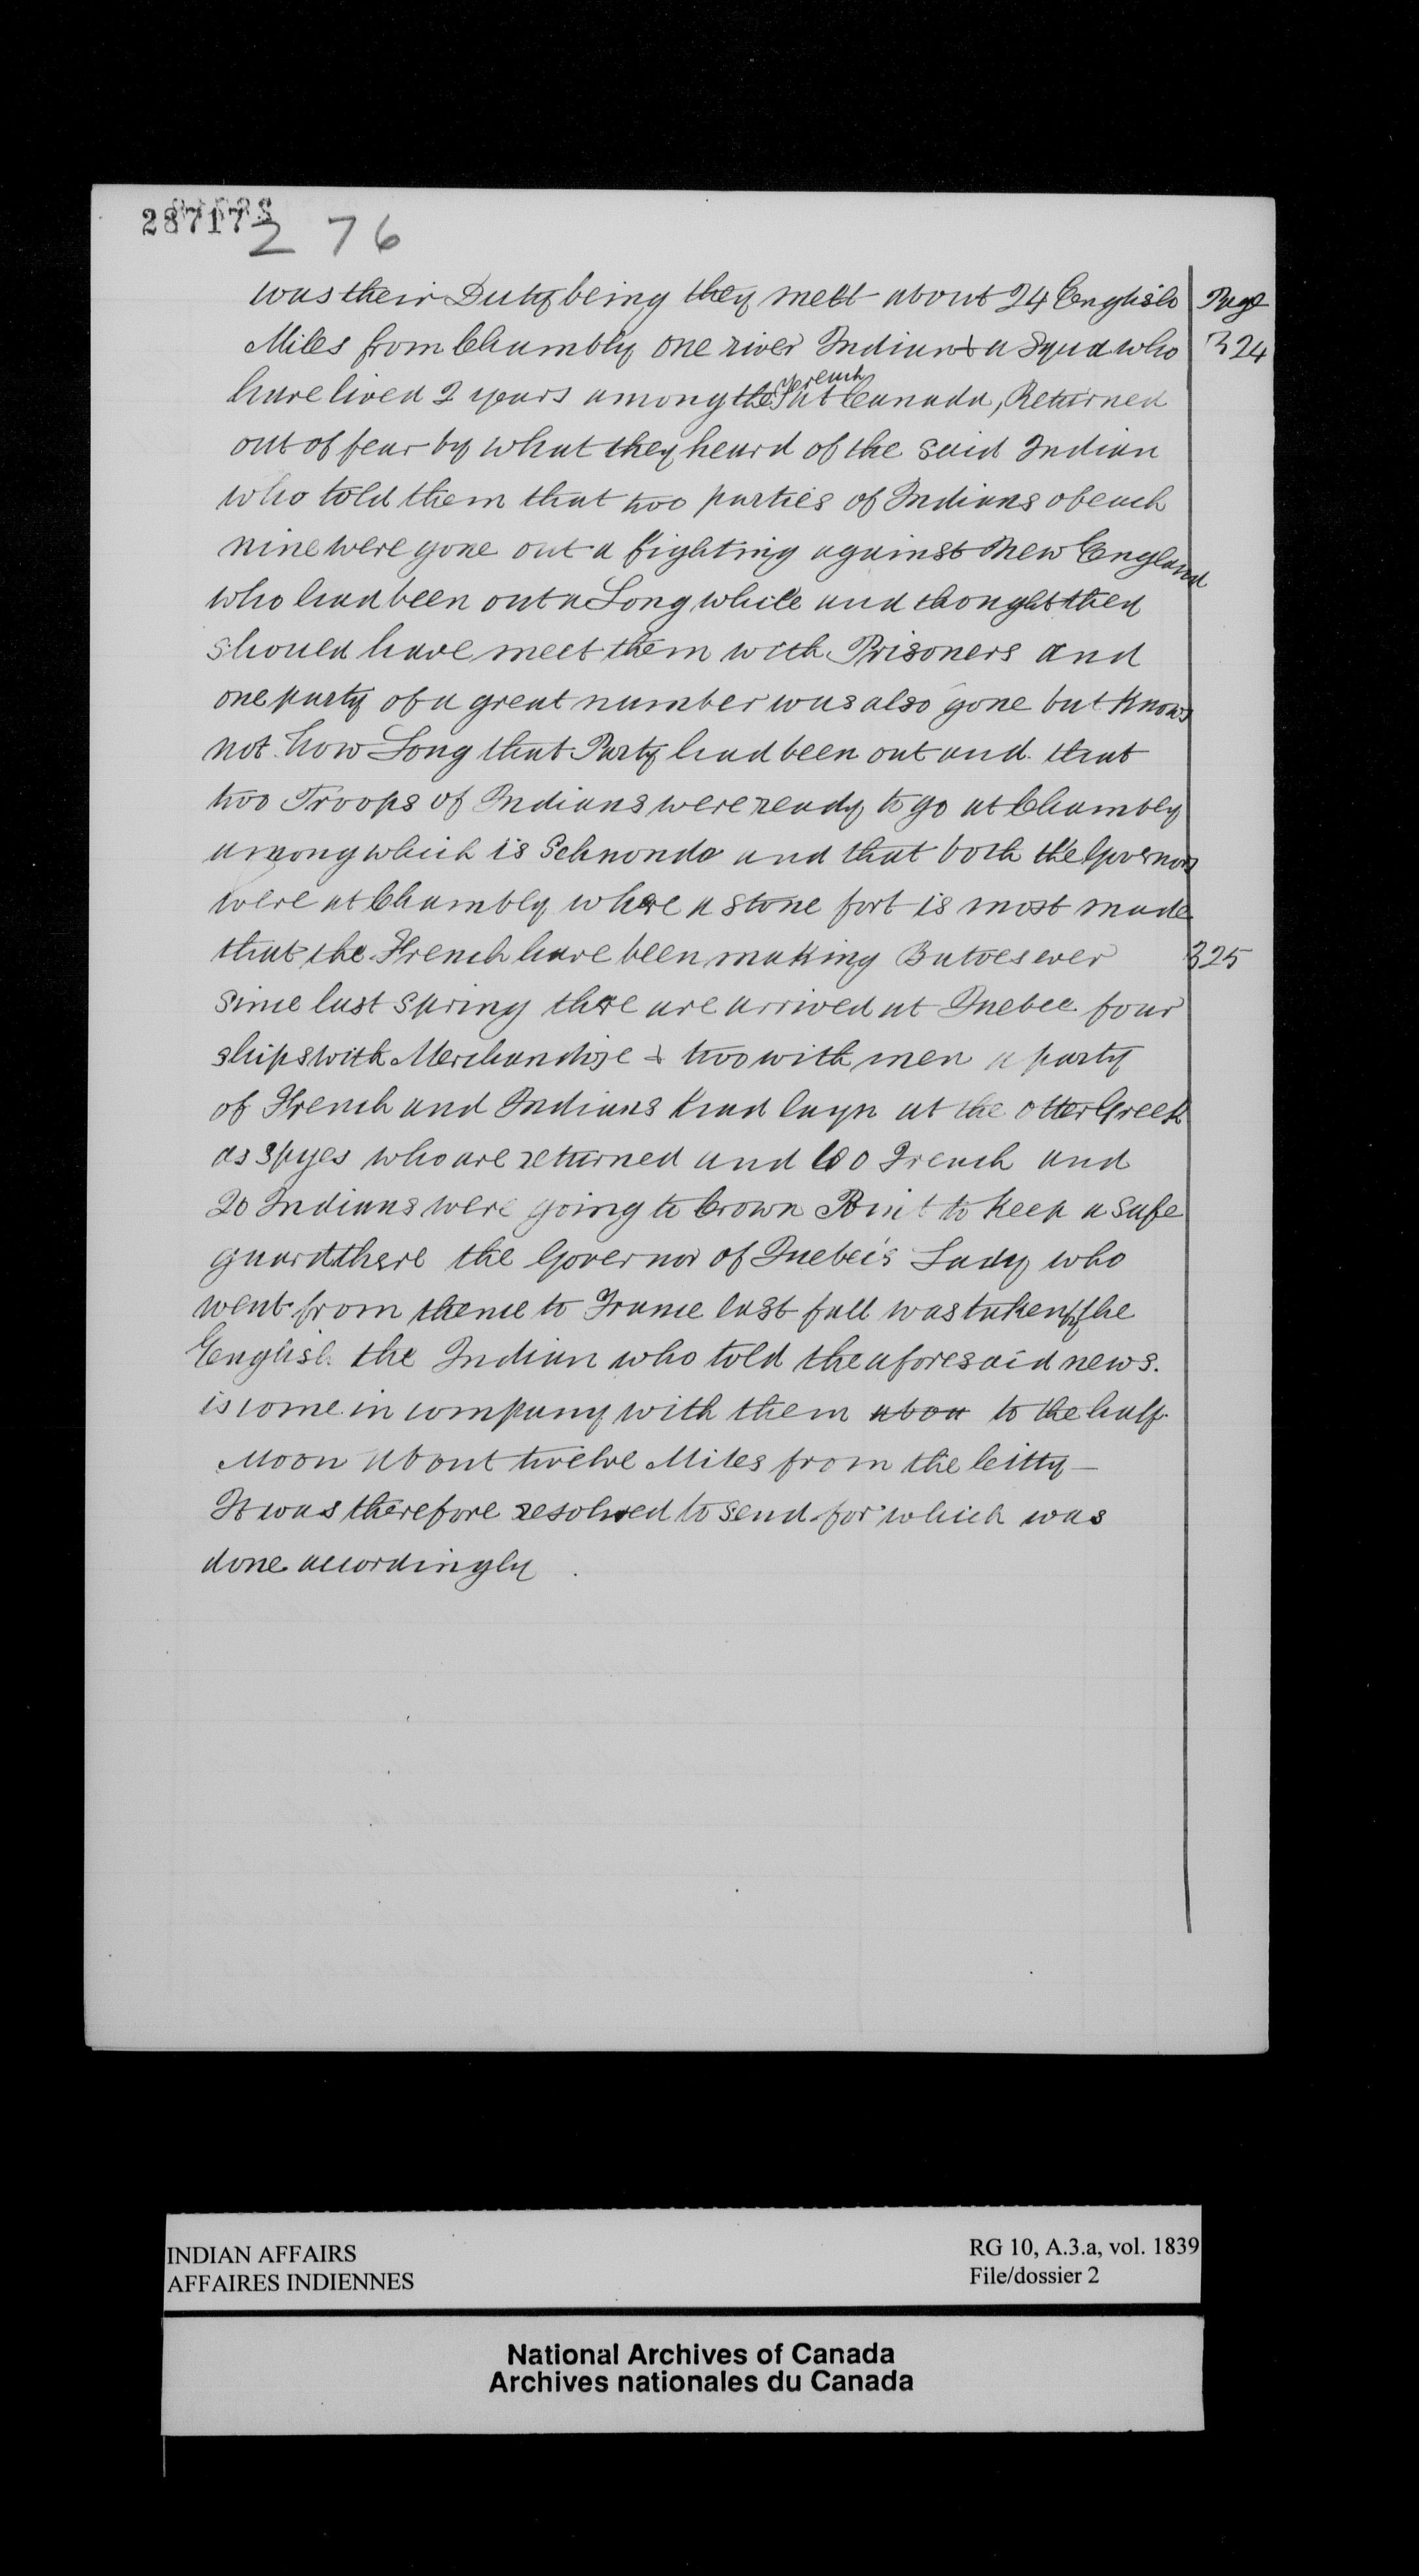 287173
2 76
was their Duty being they mett about 24 English Page
Miles from Chambly one river Indian & a Squa who 324
have lived 2 years among the french at Canada, Returned
out of fear by what they heard of the said Indian
who told them that two parties of Indians of each
nine were gone out a fighting against New England
who had been out a Long while and thought they
should have meet them with Prisoners and
one party of a great number was also gone but knows
not how Long that Party had been out and that
two Troops of Indians were ready to go at Chambly
among which is Schnonda and that both the Governors
were at Chambly where a stone fort is most made
that the French have been making Batoes ever 325
since last spring there are arrived at Quebec four
ships with Merchandize & two with men a party
of French and Indians had layn at the otter Creek
as spyes who are returned and French and
20 Indians were going to Crown Point to keep a safe
guard there the Governor of Quebec's Lady who
went from thence to France last fall was taken by the
English the Indian who told the aforesaid news.
is come in company with them abou to the half
Moon about twelve Miles from the Citty—
It was therefore resolved to send for which was
done accordingly.
INDIAN AFFAIRS
AFFAIRES INDIENNES
RG 10, A.3.a, vol. 1839
File/dossier 2
National Archives of Canada
Archives nationales du Canada